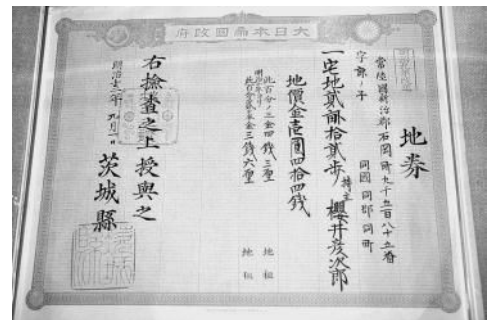 大日本帝國政府
地券
常陸國新治郡石岡町九千五百八十五番
字 ノ子
同國同郡同町
一宅地貳畝拾貳歩 持主 櫻井彦次郎
地價金壱圓四拾四錢
此百分ノ三金四錢三厘 地租
明治十年ヨリ
此百分ノ貳ケ半金三錢六厘 地租
右撿査之上授與之
明治十二年九月 日
茨城縣